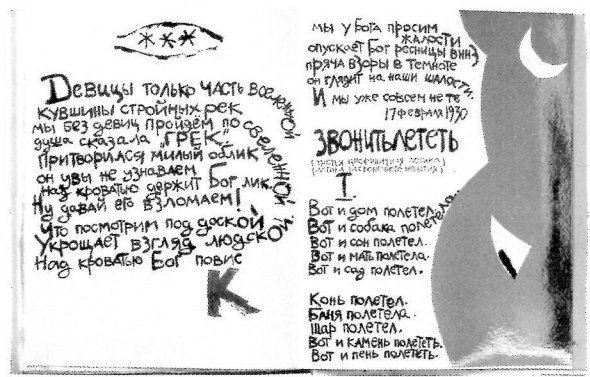 ***
Девицы только часть вселенной
кувшины стройных рек
мы без девиц пройдем по вселенной
душа сказала „ГРЕК“
Притворился милый облик
он увы не узнаваем
над кроватью держит Бог лик
Ну давай его взломаем!
Что посмотрим под доской
Укрощает взгляд людской
Над кроватью Бог повис
К
мы у бога просим
жалости
опускает Бог ресницы вниз
пряча взоры в темноте
он глядит на наши шалости.
И мы уже совсем не те
17 февраля 1930
ЗВОНИТЬЛЕТЕТЬ
(третья цисфинитная логика)
I
Вот и дом полетел.
Вот и собака полетела.
Вот и сон полетел.
Вот и мать полетела.
Вот и сад полетел.
Конь полетел.
Баня полетела.
Шар полетел.
Вот и камень полететь.
Вот и пень полететь.